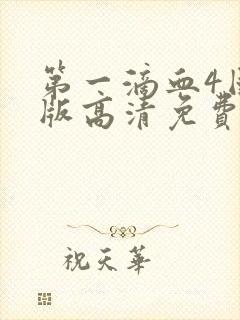 第一滴血4国
版高清免费
祝天华